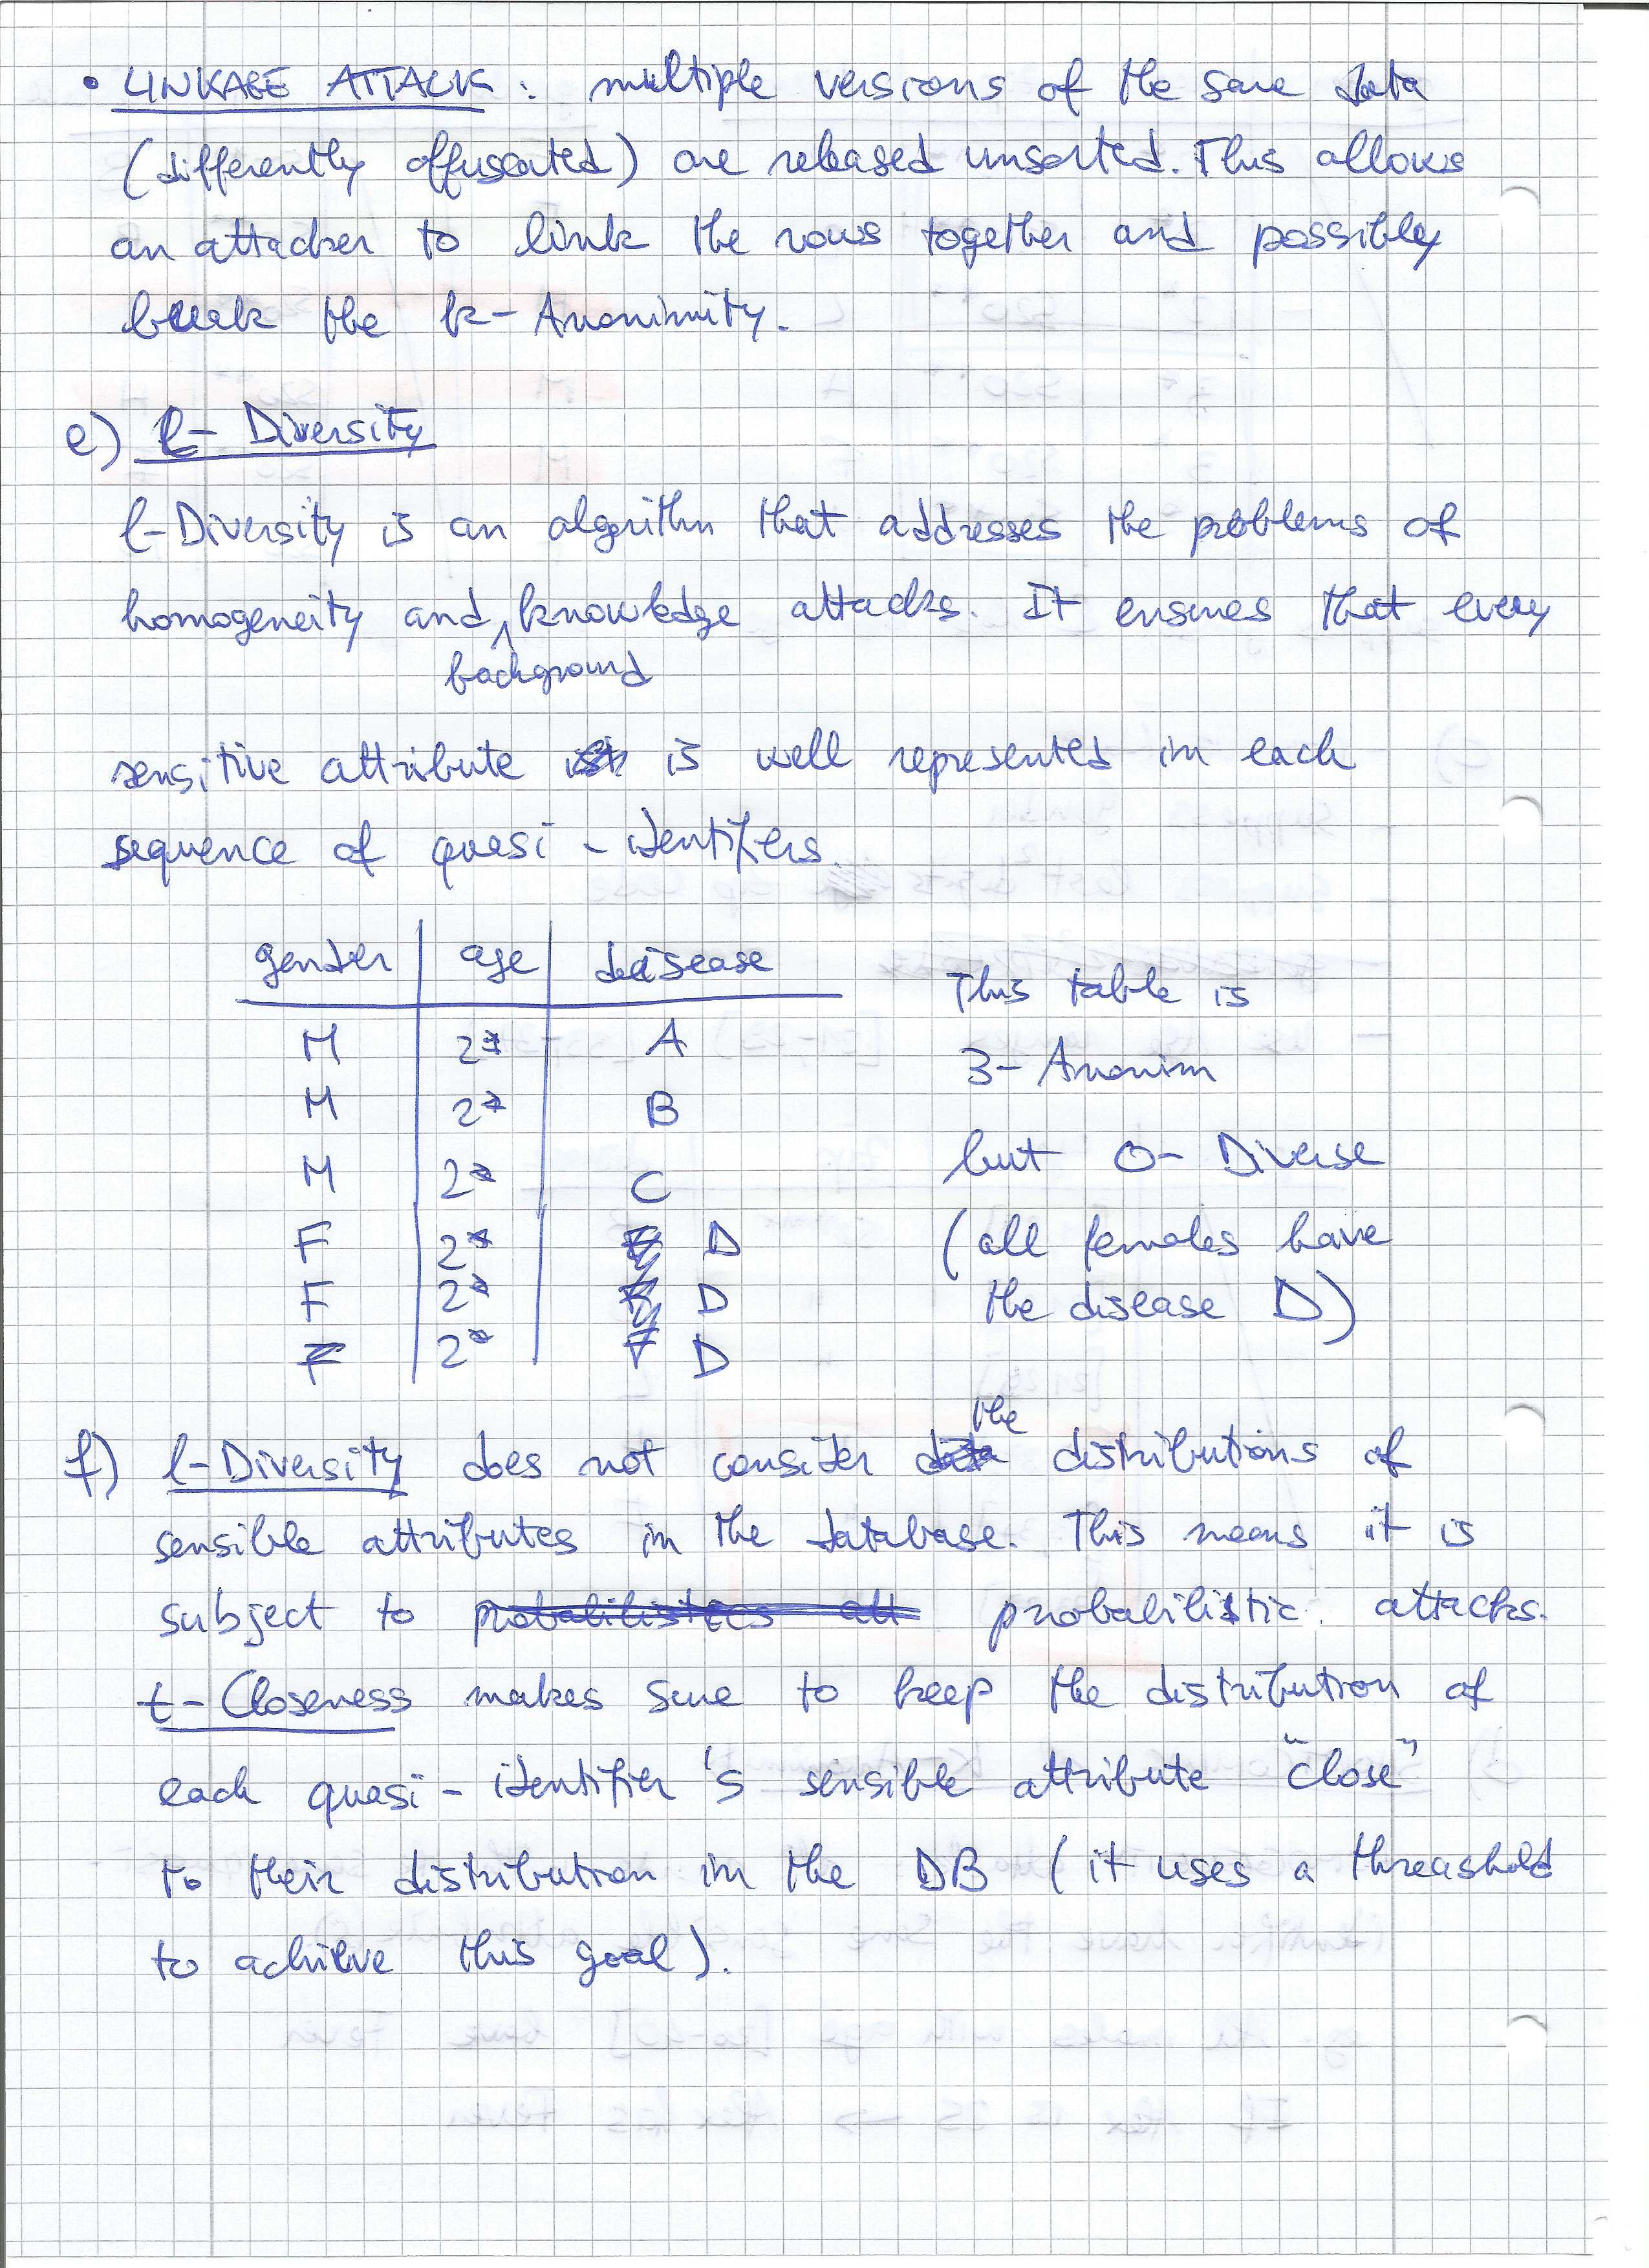 • LINKAGE ATTACK: multiple versions of the same data
(differently offuscated) are released unsorted. This allows
an attacker to link the rows together and possibly
break the k-Anonimity.
e) l-Diversity
l-Diversity is an algorithm that addresses the problems of
homogeneity and background knowledge attacks. It ensures that every
sensitive attribute is well represented in each
sequence of quasi-identifiers.
gender age disease
M 2* A
M 2* B
M 2* C
F 2* D
F 2* D
F 2* D
This table is
3-Anonim
but 0-Diverse
(all females have
the disease D)
f) l-Diversity does not consider the distributions of
sensible attributes in the database. This means it is
subject to probabilistics att probabilistic attacks.
t-Closeness makes sure to keep the distribution of
each quasi-identifier's sensible attribute "close"
to their distribution in the DB (it uses a threashold
to achieve this goal).